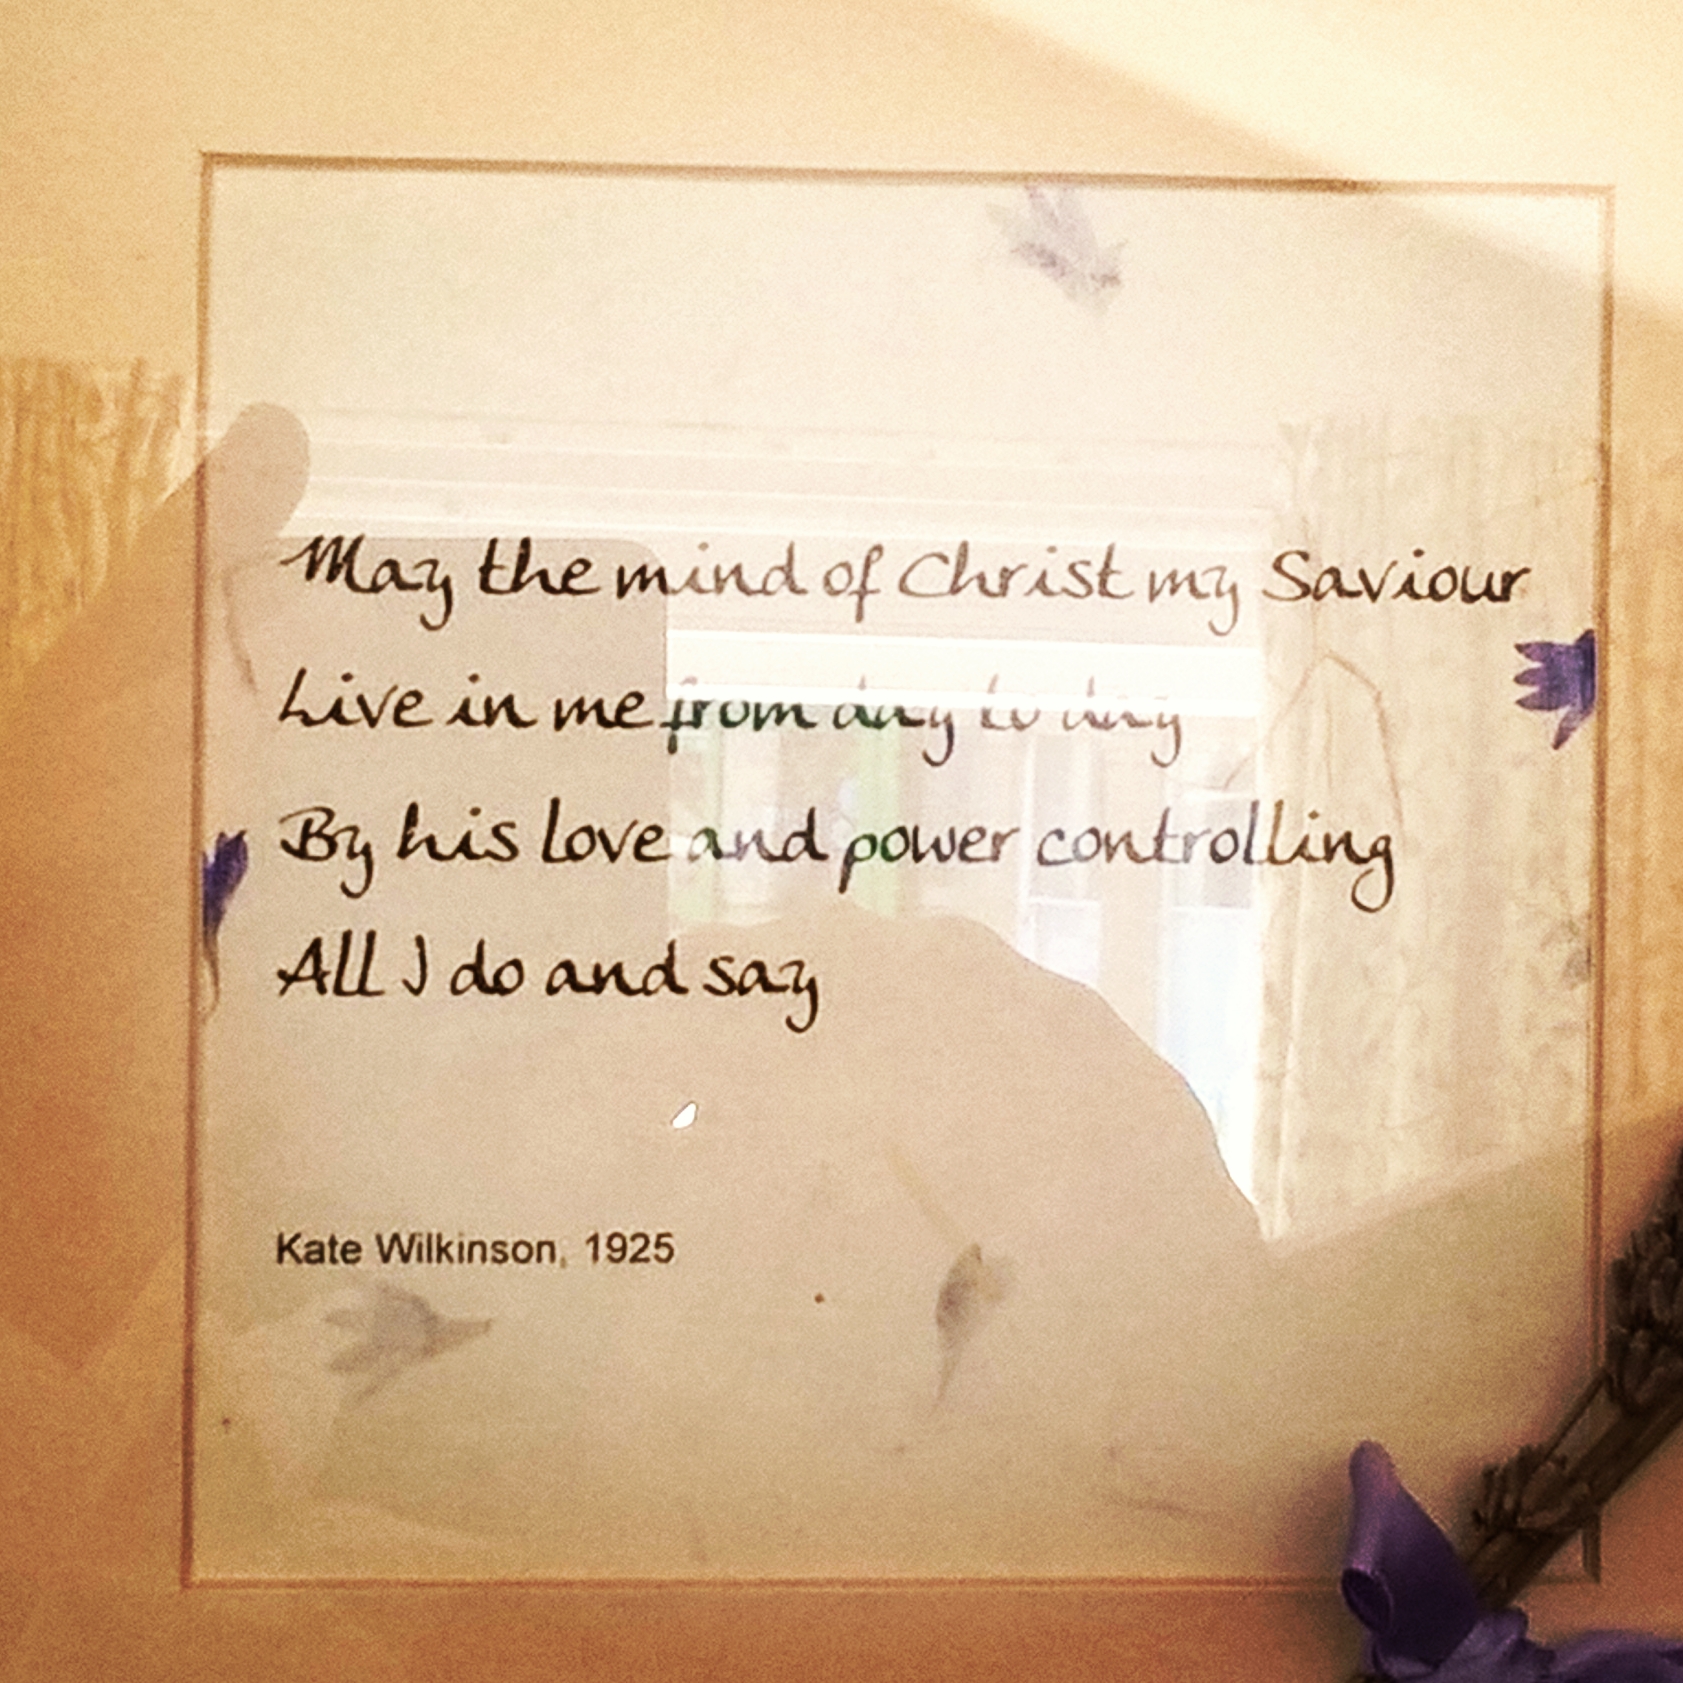 May the mind of Christ my Saviour
Live in me from day to day
By his love and power controlling
All I do and say
Kate Wilkinson, 1925